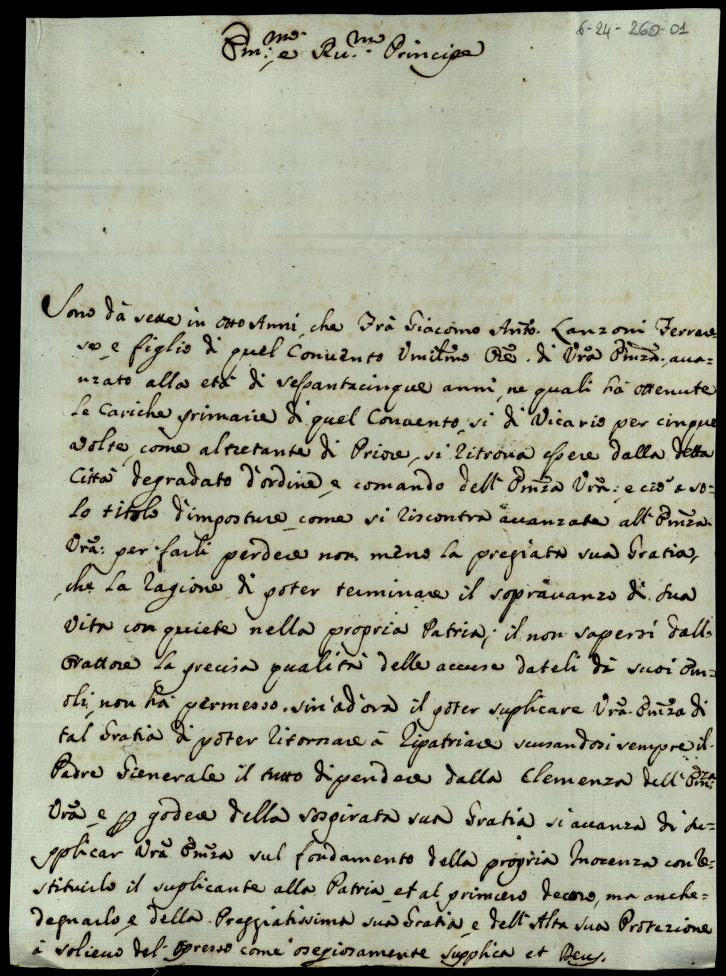 6-24-260-01
Em:mo e Ru:mo Principe
Sono dà sette in otto Anni, che Frà Giacomo Anto. Lanzoni Ferrare
se, e figlio di quel Convento Umilmo Ore. di Vrã Emza. ava=
nzato alla età di sessantacinque anni, ne quali hà ottenute
le cariche primarie di quel Convento, si di Vicario per cinque
volte, come altretante di Priore, si ritrova essere dalla detta
Città degradato d'ordine, e comando dell' Emza Vrã: e ciò a so=
lo titolo d'imposture, come si riscontra avanzate all' Emza
Vrã: per farli perdere non meno la pregiata sua Gratia,
che la ragione di poter terminare il sopravanzo di sua
vita con quiete nella propria Patria; il non sapersi dall'
Orattore la precisa qualità delle accuse dateli dà suoi Em=
oli, non hà permesso, sin' ad'ora il poter suplicare Vrã Emza di
tal Gratia di poter ritornare à ripatriare scusandosi sempre il
Padre Generale il tutto dipendere dalla Clemenza dell' Em:za
Vrã, e p godere della sospirata sua Gratia si avanza di su=
pplicar Vrã Emza sul fondamento della propria Inocenza con re=
stituirlo il suplicante alla Patria, et al primiero decoro, ma anche=
degnarlo, e della Preggiatissima sua Gratia, e dell' Alta sua Protezione
à solievo del' Opresso come osequiosamente supplica et Deus.